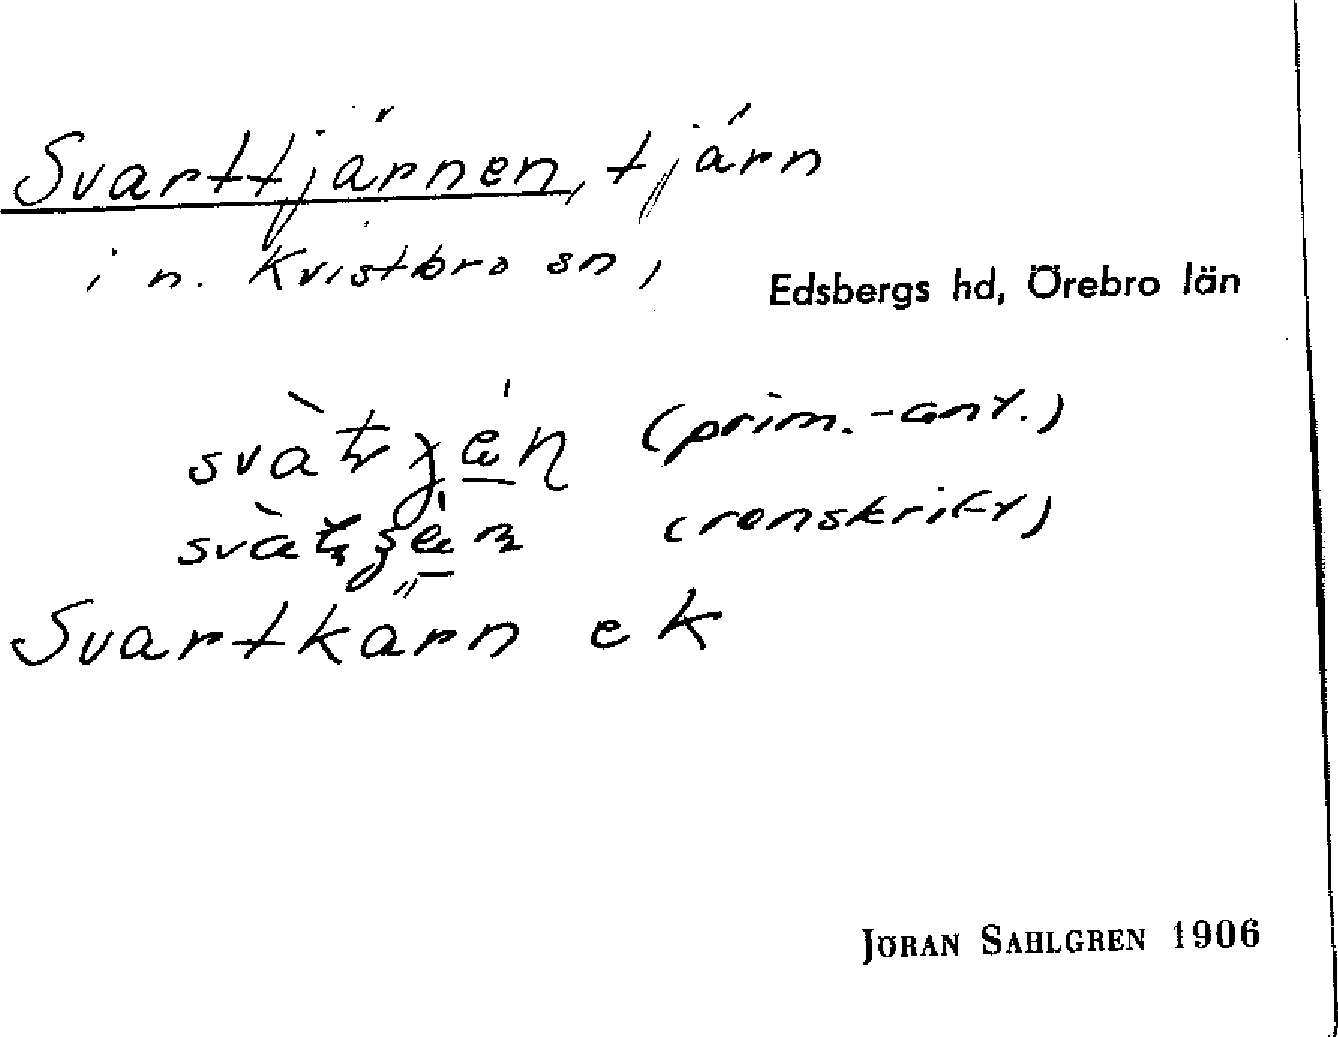 Svarttjärnen, tjärn
i n. Kvistbro sn,
Edsbergs hd, Örebro län
(prim.-ant.)
(renskrift)
Svartkärn ek
JÖRAN SAHLGREN 1906